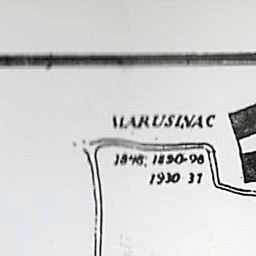 MARUSINAC
1848, 1890-98
1930-37